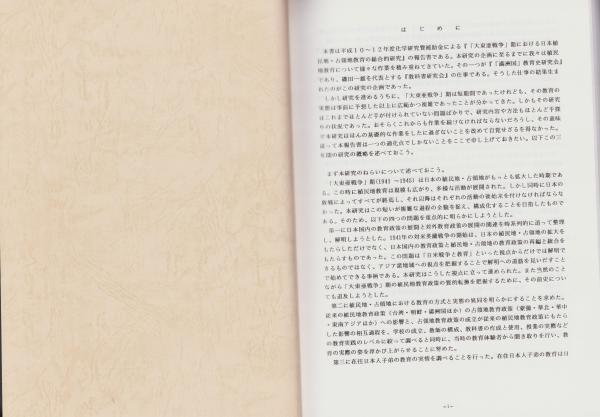 はじめに
本書は平成10～12年度化学研究費補助金による『「大東亜戦争」期における日本植
民地・占領地教育の総合的研究』の報告書である。本研究の企画に至るまでに我々は植民
地教育について様々な作業を積み重ねてきていた。その一つが『「満洲国」教育史研究会』
であり、磯田一雄を代表とする『教科書研究会』の仕事である。そうした仕事の結果生ま
れたのがこの研究の企画であった。
しかし研究を進めるうちに、「大東亜戦争」期は短期間であったけれども、その教育の
実態は事前に予想した以上に広範かつ複雑であったことが分かってきた。しかもその研究
はこれまでほとんど手が付けられていない問題ばかりで、研究内容や方法もほとんど手探
りの状況であった。おそらくこれからも作業を続けなければならないだろうし、その意味
で本研究はほんの基礎的な作業をしたに過ぎないことを改めて自覚せざるを得なかった。
従って本報告書は一つの通過点でしかないことをここで申し上げておきたい。以下この三
年間の研究の概略を述べておこう。
まず本研究のねらいについて述べておこう。
「大東亜戦争」期(1941～1945)は日本の植民地・占領地がもっとも拡大した時期であ
る。この時に植民地教育は規模も広がり、多様な活動が展開された。しかし同時に日本の
敗戦によってすべてが終焉し、それ以降はそれぞれの活動の後始末を付けなければならな
かった。本研究はこの短いが複雑な過程の全貌を捉え、構造化することを目指したもので
ある。そのため、以下の四つの問題を重点的に明らかにしようとした。
第一に日本国内の教育政策の展開と対外教育政策の展開の関連を時系列的に追って整理
し、解明しようとした。1941年の対米英蘭戦争の開始は、日本の植民地・占領地の拡大を
もたらしただけでなく、日本国内の教育政策と植民地・占領地の教育政策の再編と統合を
もたらすものであった。この問題は「日米戦争と教育」といった視点からだけでは解明で
きるものではなく、アジア諸地域への視点を把握することで解明への道筋を見いだすこと
で始めてできる事柄である。本研究はこうした視点に立って進められた。また当然のこと
ながら「大東亜戦争」期の植民地教育政策の質的転換を把握するために、その前史につい
ても追及しようとした。
第二に植民地・占領地における教育の方式と実態の異同を明らかにすることを求めた。
従来の植民地教育政策(台湾・朝鮮・満洲国ほか)の占領地教育政策(蒙彊・華北・華中
・東南アジアほか)への影響と、占領地教育政策の成立が従来の植民地教育政策にもたら
した影響の相互過程を、学校の成立、教師の構成、教科書の作成と使用、授業の実際など
の教育実践のレベルに絞って調べると同時に、当時の教育体験者から聞き取りを行い、教
育の実際の姿を浮かび上がらせることに努めた。
第三に在住日本人子弟の教育の実情を調べることを行った。在住日本人子弟の教育は日
-1-